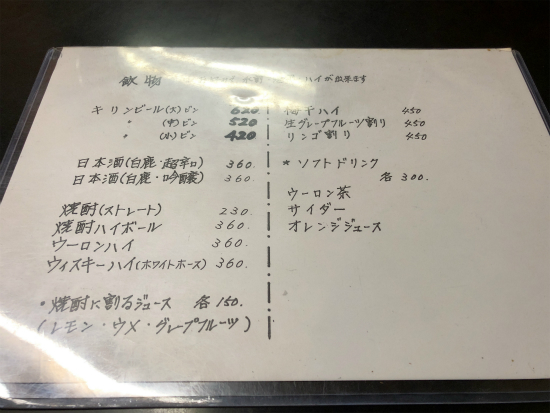 飲物
ハイが出来ます
キリンビール(大)ビン 620
〃 (中)ビン 520
〃 (小)ビン 420
日本酒(白鹿・超辛口) 360.
日本酒(白鹿・吟醸) 360.
焼酎(ストレート) 230.
焼酎ハイボール 360.
ウーロンハイ 360.
ウィスキーハイ(ホワイトホース) 360.
・焼酎に割るジュース 各150.
(レモン・ウメ・グレープフルーツ)
梅干ハイ 450
生グレープフルーツ割り 450
リンゴ割り 450.
* ソフトドリンク
各300.
ウーロン茶
サイダー
オレンジジュース